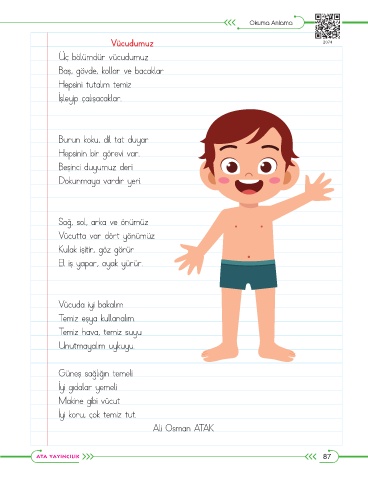 Okuma Anlama
2074
Vücudumuz
Üç bölümdür vücudumuz
Baş, gövde, kollar ve bacaklar
Hepsini tutalım temiz
İşleyip çalışacaklar.
Burun koku, dil tat duyar
Hepsinin bir görevi var.
Beşinci duyumuz deri
Dokunmaya vardır yeri.
Sağ, sol, arka ve önümüz
Vücutta var dört yönümüz
Kulak işitir, göz görür
El iş yapar, ayak yürür.
Vücuda iyi bakalım
Temiz eşya kullanalım.
Temiz hava, temiz suyu
Unutmayalım uykuyu.
Güneş sağlığın temeli
İyi gıdalar yemeli
Makine gibi vücut
İyi koru, çok temiz tut.
Ali Osman ATAK
ATA YAYINCILIK
87